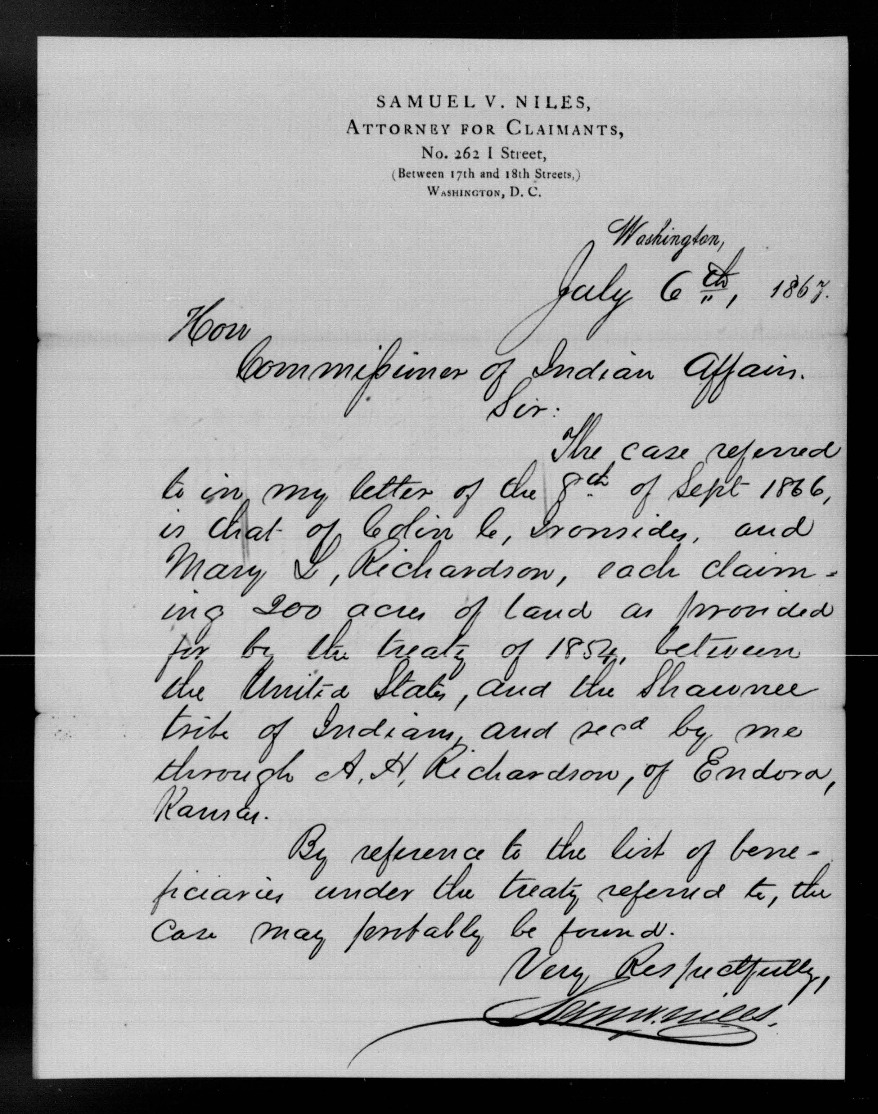 SAMUEL V. NILES,
ATTORNEY FOR CLAIMANTS,
No. 262 I Street,
(Between 17th and 18th Streets,)
WASHINGTON, D. C.
Washington,
July 6th, 1867.
Hon
Commissioner of Indian Affairs.
Sir:
The case referred
to in my letter of the 8th of Sept 1866,
is that of Colin C, Ironsides, and
Mary L, Richardson, each claim-
ing 200 acres of land as provided
for by the treaty of 1854, between
the United States, and the Shawnee
tribe of Indians, and recd by me
through A. H. Richardson, of Eudora,
Kansas.
By reference to the list of bene-
ficiaries under the treaty referred to, the
case may probably be found.
Very Respectfully,
Sam V. Niles.